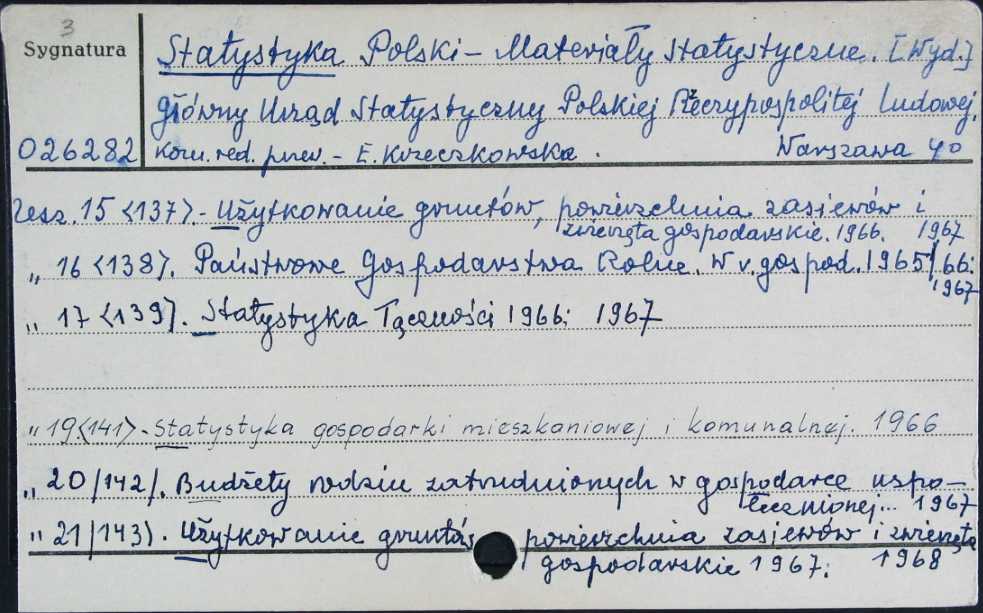 3
Sygnatura
Statystyka Polski - Materiały statystyczne. [Wyd.]
Główny Urząd Statystyczny Polskiej Rzeczypospolitej Ludowej.
026282
Kom. red. przew. - E. Krzeczkowska. Warszawa 40
Zesz. 15 <137> - Użytkowanie gruntów, powierzchnia zasiewów i
zwierzęta gospodarskie. 1966. 1967
" 16 <138>. Państwowe Gospodarstwa Rolne. W r. gospod. 1965/66:
1967
" 17 <139>. Statystyka Łączności 1966: 1967
" 19.<141> - Statystyka gospodarki mieszkaniowej i komunalnej. 1966
" 20/142/. Budżety rodzin zatrudnionych w gospodarce uspo-
łecznionej... 1967
" 21/143). Użytkowanie gruntów powierzchnia zasiewów i zwierzęta
gospodarskie 1967: 1968